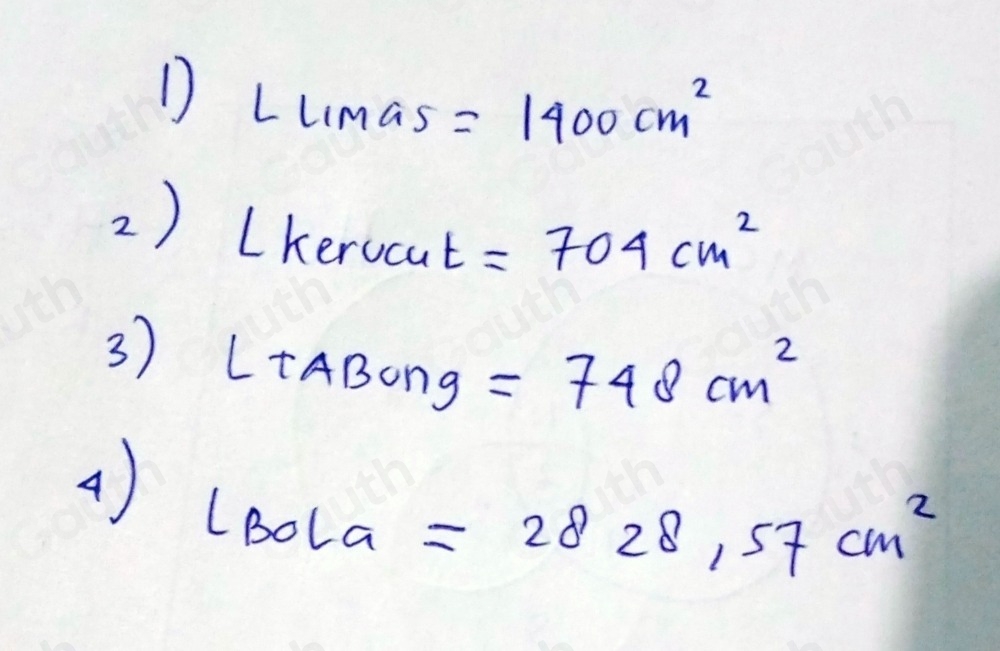 1) L Limas = 1400 cm²
2) L kerucut = 704 cm²
3) L TABung = 748 cm²
4) L BoLa = 2828,57 cm²
Gauth